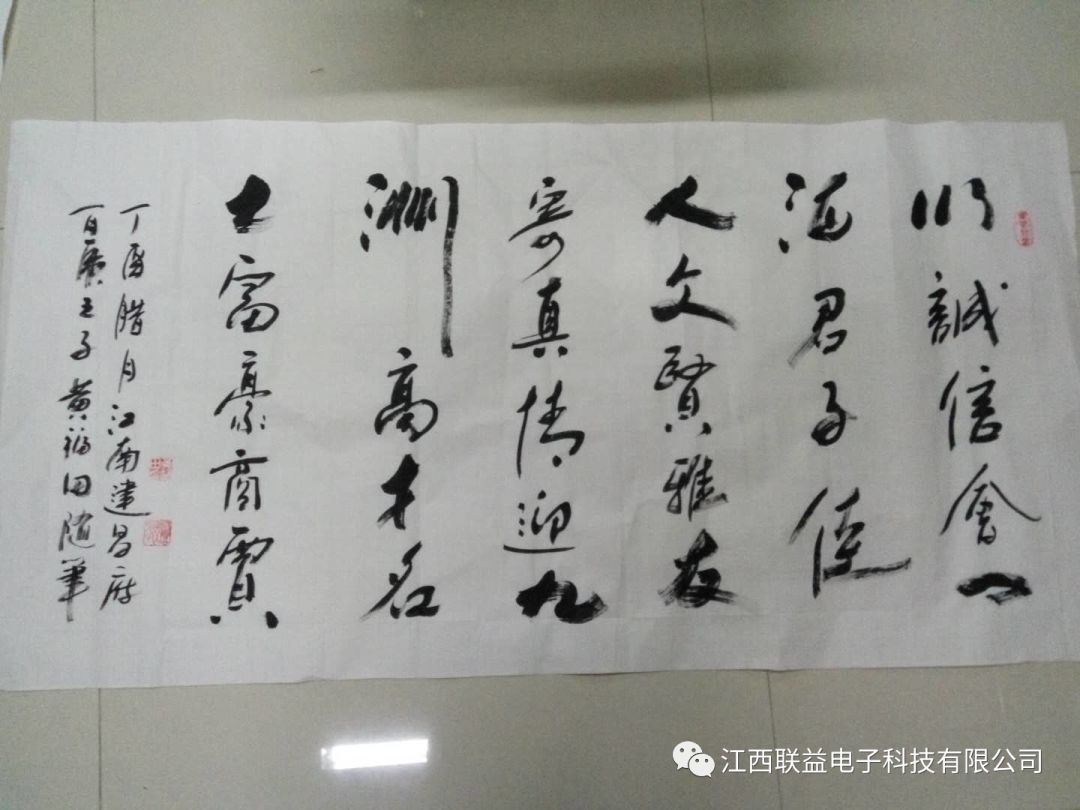 以诚信會八
海君子侠
人文賢雅友
寄真情迎九
洲高才名
士富豪商賈
丁酉腊月江南建昌府
百歲王子黄福田随筆
江西联益电子科技有限公司